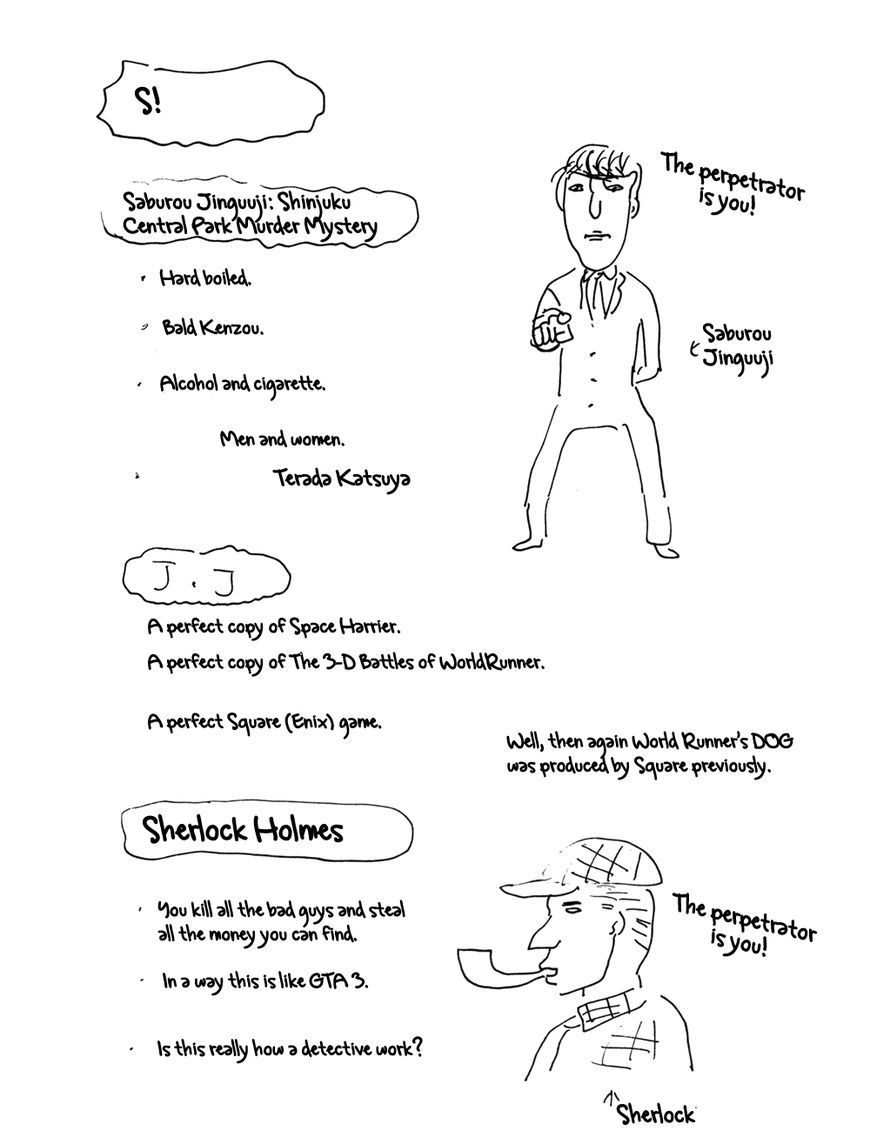 S!
Saburou Jinguuji: Shinjuku
Central Park Murder Mystery
The perpetrator
is you!
· Hard boiled.
· Bald Kenzou.
Saburou
Jinguuji
· Alcohol and cigarette.
Men and women.
· Terada Katsuya
J.J
A perfect copy of Space Harrier.
A perfect copy of The 3-D Battles of WorldRunner.
A perfect Square (Enix) game.
Well, then again World Runner's DOG
was produced by Square previously.
Sherlock Holmes
· You kill all the bad guys and steal
all the money you can find.
The perpetrator
is you!
· In a way this is like GTA 3.
· Is this really how a detective work?
Sherlock